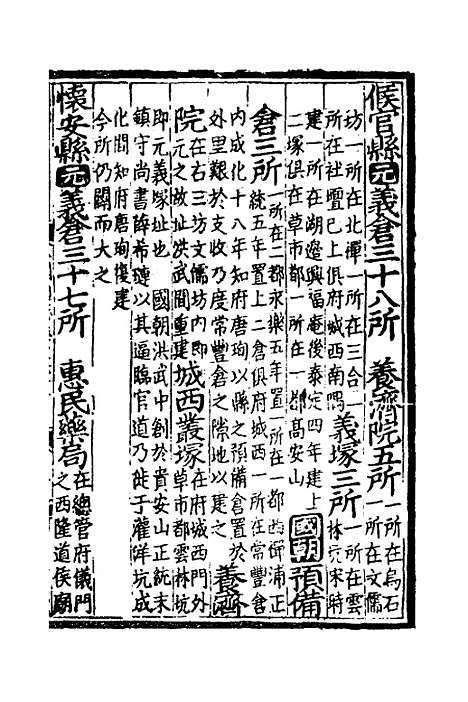 候官縣元義倉三十八所　養濟院五所一所在烏石
一所在文儒
坊一所在北禪一所在三合一
所在社壇巳上俱府城西南隅
義塚三所一所在雲
林六宋時
建一所在湖邊興福庵後泰定四年建上
二塚俱在草市都一所在一都高安山
國朝預備
倉三所一所在二都永樂五年置一所在一都西御浦正
統五年置上二倉俱府城西一所在常豐倉
內成化十八年知府唐珣以縣之預備倉置於
外里艱於支收乃度常豐倉之隙地以建之
養濟
院在右三坊文儒坊內即
元之故址洪武間重建
城西叢塚在府城西門外
草市都雲林坑
即元義塚址也　國朝洪武中創於貴安山正統末
鎮守尚書薛希璉以其逼臨官道乃徙于灌洋坑成
化間知府唐珣復建
今所仍闢而大之
懷安縣元義倉三十七所　惠民藥局在總管府儀門
之西隆道侯廟